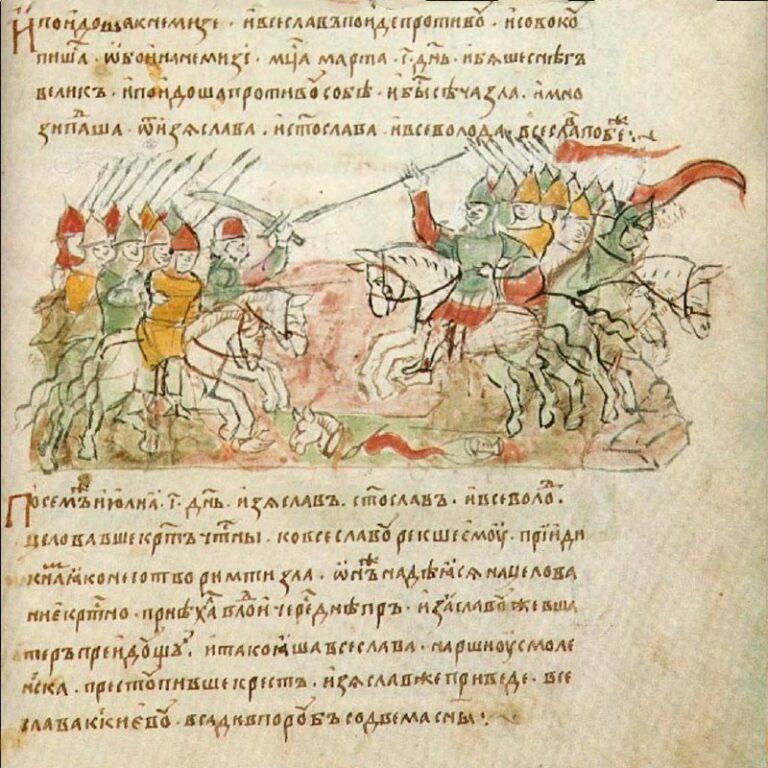 И поидоша к немизе · и всеславъ поиде противоу · и совокоу
пишѧ · ѡбои на немизѣ · мц҃а марта · г҃ · дн҃ь · и бяше снѣгъ
великъ · и поидоша противоу собѣ · и бы с̑ сѣча зла · и мно
зи падша · ѿ изяслава · и ст҃ослава · и всеволода · всеславъ побеже :·
По семъ мц҃а июлиа · г҃ · дн҃ь · изяславъ · ст҃ославъ · и всеволодъ ·
целовавше кр҃тъ чт҃ны · ко всеславоу рекше емоу · прїиди
к намъ яко не сотворим ти зла · ѡн же надѣяся на целова
ние кр҃тно · приѣха в лодьи чере днѣпръ · изяславоу же в ша
теръ преидоущоу · и тако яша всеслава · на ршиоу смоле
нска · престоупивше крестъ · изяслав же приведе · все
слава к киевоу · всади в пороубъ со двема сн҃ы :·